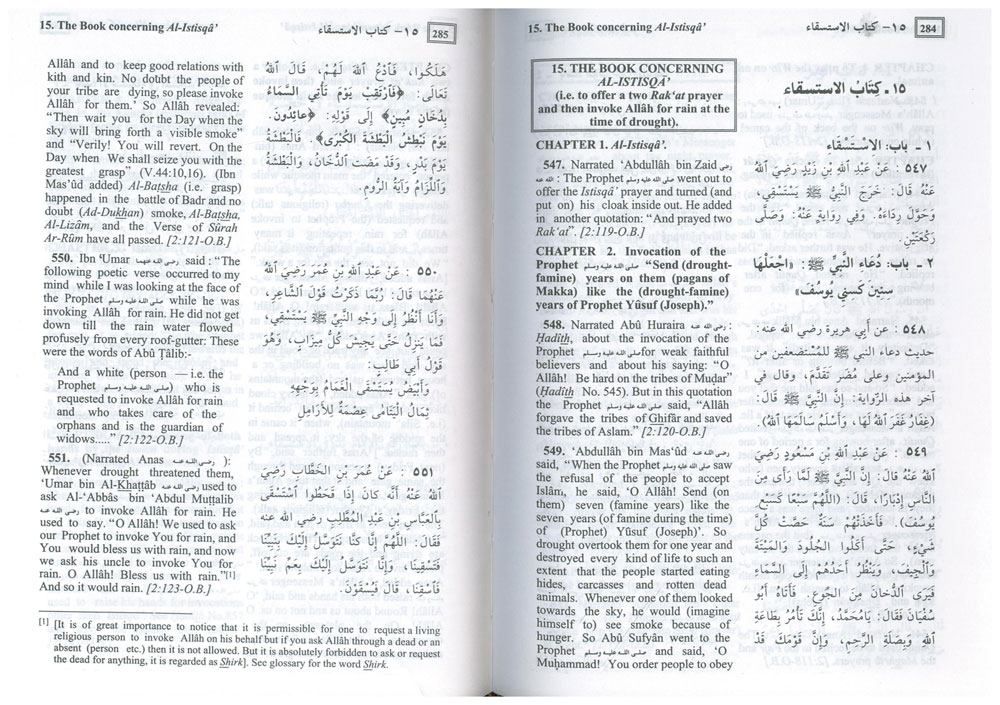 15. The Book concerning Al-Istisqâ’
١٥- كتاب الاستسقاء
284
15. THE BOOK CONCERNING
AL-ISTISQÂ’
(i.e. to offer a two Rak‘at prayer
and then invoke Allâh for rain at the
time of drought).
CHAPTER 1. Al-Istisqâ’.
547. Narrated ‘Abdullâh bin Zaid رضي
الله عنه : The Prophet صلى الله عليه وسلم went out to
offer the Istisqâ’ prayer and turned (and
put on) his cloak inside out. He added
in another quotation: “And prayed two
Rak‘at”. [2:119-O.B.]
CHAPTER 2. Invocation of the
Prophet صلى الله عليه وسلم “Send (drought-
famine) years on them (pagans of
Makka) like the (drought-famine)
years of Prophet Yûsuf (Joseph).”
548. Narrated Abû Huraira رضي الله عنه :
Ḥadîth, about the invocation of the
Prophet صلى الله عليه وسلم for weak faithful
believers and about his saying: “O
Allâh! Be hard on the tribes of Muḍar”
(Ḥadîth No. 545). But in this quotation
the Prophet صلى الله عليه وسلم said, “Allâh
forgave the tribes of Ghifâr and saved
the tribes of Aslam.” [2:120-O.B.]
549. ‘Abdullâh bin Mas‘ûd رضي الله عنه
said, “When the Prophet صلى الله عليه وسلم saw
the refusal of the people to accept
Islâm, he said, ‘O Allâh! Send (on
them) seven (famine years) like the
seven years (of famine during the time)
of (Prophet) Yûsuf (Joseph)’. So
drought overtook them for one year and
destroyed every kind of life to such an
extent that the people started eating
hides, carcasses and rotten dead
animals. Whenever one of them looked
towards the sky, he would (imagine
himself to) see smoke because of
hunger. So Abû Sufyân went to the
Prophet صلى الله عليه وسلم and said, ‘O
Muḥammad! You order people to obey
١٥ ـ كِتَابُ الاستسقاء
١ ـ باب: الاسْتِسْقَاء
٥٤٧ : عَنْ عَبْدِ اللهِ بْنِ زَيْدٍ رَضِيَ اللهُ
عَنْهُ قَالَ: خَرَجَ النَّبِيُّ ﷺ يَسْتَسْقِي،
وَحَوَّلَ رِدَاءَهُ. وَفِي رِوَايَةٍ عَنْهُ: وَصَلَّى
رَكْعَتَيْنِ.
٢ ـ باب: دُعَاء النَّبِيِّ ﷺ: «اجْعَلْهَا
سِنِينَ كَسِنِي يُوسُفَ»
٥٤٨ : عن أبي هريرة رضي الله عنه:
حديث دعاء النبي ﷺ للمُسْتضعفين من
المؤمنين وعلى مُضَر تقدَّمَ، وقال في
آخر هذه الرِّواية: إنَّ النَّبيَّ ﷺ قَالَ:
(غِفَارُ غَفَرَ اللهُ لَهَا، وَأَسْلَمُ سَالَمَهَا اللهُ).
٥٤٩ : عَنْ عَبْدِ اللهِ بْنِ مَسْعُودٍ رَضِيَ
اللهُ عَنْهُ قالَ: إنَّ النَّبِيَّ ﷺ لَمَّا رَأَى مِنَ
النَّاسِ إِدْبَارًا، قَالَ: (اللَّهُمَّ سَبْعًا كَسَبْعِ
يُوسُفَ). فَأَخَذَتْهُمْ سَنَةٌ حَصَّتْ كُلَّ
شَيْءٍ، حَتَّى أَكَلُوا الجُلُودَ وَالمَيْتَةَ
وَالْجِيَفَ، وَيَنْظُرَ أَحَدُهُمْ إلَى السَّمَاءِ
فَيَرَى الدُّخانَ مِنَ الجُوعِ. فَأَتَاهُ أَبُو
سُفْيَانَ فَقَالَ: يَامُحَمَّدُ، إنَّكَ تَأْمُرُ بِطَاعَةِ
اللهِ وَبِصِلَةِ الرَّحِمِ، وَإِنَّ قَوْمَكَ قَدْ
15. The Book concerning Al-Istisqâ’
١٥- كتاب الاستسقاء
285
Allâh and to keep good relations with
kith and kin. No doubt the people of
your tribe are dying, so please invoke
Allâh for them.’ So Allâh revealed:
“Then wait you for the Day when the
sky will bring forth a visible smoke”
and “Verily! You will revert. On the
Day when We shall seize you with the
greatest grasp” (V.44:10,16). (Ibn
Mas‘ûd added) Al-Baṭsha (i.e. grasp)
happened in the battle of Badr and no
doubt (Ad-Dukhan) smoke, Al-Baṭsha,
Al-Lizâm, and the Verse of Sûrah
Ar-Rûm have all passed. [2:121-O.B.]
550. Ibn ‘Umar رضي الله عنهما said : “The
following poetic verse occurred to my
mind while I was looking at the face of
the Prophet صلى الله عليه وسلم while he was
invoking Allâh for rain. He did not get
down till the rain water flowed
profusely from every roof-gutter: These
were the words of Abû Ṭâlib:-
And a white (person — i.e. the
Prophet صلى الله عليه وسلم) who is
requested to invoke Allâh for rain
and who takes care of the
orphans and is the guardian of
widows.....” [2:122-O.B.]
551. (Narrated Anas رضي الله عنه ):
Whenever drought threatened them,
‘Umar bin Al-Khaṭṭâb رضي الله عنه used to
ask Al-‘Abbâs bin ‘Abdul Muṭṭalib
رضي الله عنه to invoke Allâh for rain. He
used to say. “O Allâh! We used to ask
our Prophet to invoke You for rain, and
You would bless us with rain, and now
we ask his uncle to invoke You for
rain. O Allâh! Bless us with rain.”[1]
And so it would rain. [2:123-O.B.]
هَلَكُوا، فَادْعُ اللهَ لَهُمْ، قَالَ اللهُ
تَعَالَى: ﴿فَارْتَقِبْ يَوْمَ تَأْتِي السَّمَاءُ
بِدُخَانٍ مُبِينٍ﴾ إلَى قَوْلِهِ: ﴿عائِدُونَ.
يَوْمَ نَبْطِشُ الْبَطْشَةَ الْكُبْرَى﴾. فَالْبَطْشَةُ
يَوْمَ بَدْرٍ، وَقَدْ مَضَتِ الدُّخَانُ، وَالْبَطْشَةُ
وَاللِّزَامُ وَآيَةُ الرُّومِ.
٥٥٠ : عَنْ عَبْدِ اللهِ بْنِ عُمَرَ رَضِيَ اللهُ
عَنْهُمَا قَالَ: رُبَّمَا ذَكَرْتُ قَوْلَ الشَّاعِرِ،
وَأَنَا أَنْظُرُ إلَى وَجْهِ النَّبِيِّ ﷺ يَسْتَسْقِي،
فَمَا يَنْزِلُ حَتَّى يَجِيشَ كُلُّ مِيزَابٍ، وَهُوَ
قَوْلُ أَبِي طَالِبٍ:
وَأَبْيَضُ يُسْتَسْقَى الْغَمَامُ بِوَجْهِهِ
ثِمَالُ الْيَتَامَى عِصْمَةٌ لِلأَرَامِلِ
٥٥١ : عَنْ عُمَرَ بْنِ الخَطَّابِ رَضِيَ
اللهُ عَنْهُ أَنَّه كانَ إذَا قَحَطُوا اسْتَسْقَى
بِالْعَبَّاسِ بْنِ عَبْدِ المُطَّلِبِ رضي الله عنه
فَقَالَ: اللَّهُمَّ إنَّا كنَّا نَتَوَسَّلُ إلَيْكَ بِنَبِيِّنَا
فَتَسْقِينَا، وَإِنَّا نَتَوَسَّلُ إلَيْكَ بِعَمِّ نَبِيِّنَا
فَأَسْقِنَا، قَالَ فَيُسْقَوْنَ.
[1] [It is of great importance to notice that it is permissible for one to request a living
religious person to invoke Allâh on his behalf but if you ask Allâh through a dead or an
absent (person etc.) then it is not allowed. But it is absolutely forbidden to ask or request
the dead for anything, it is regarded as Shirk]. See glossary for the word Shirk.